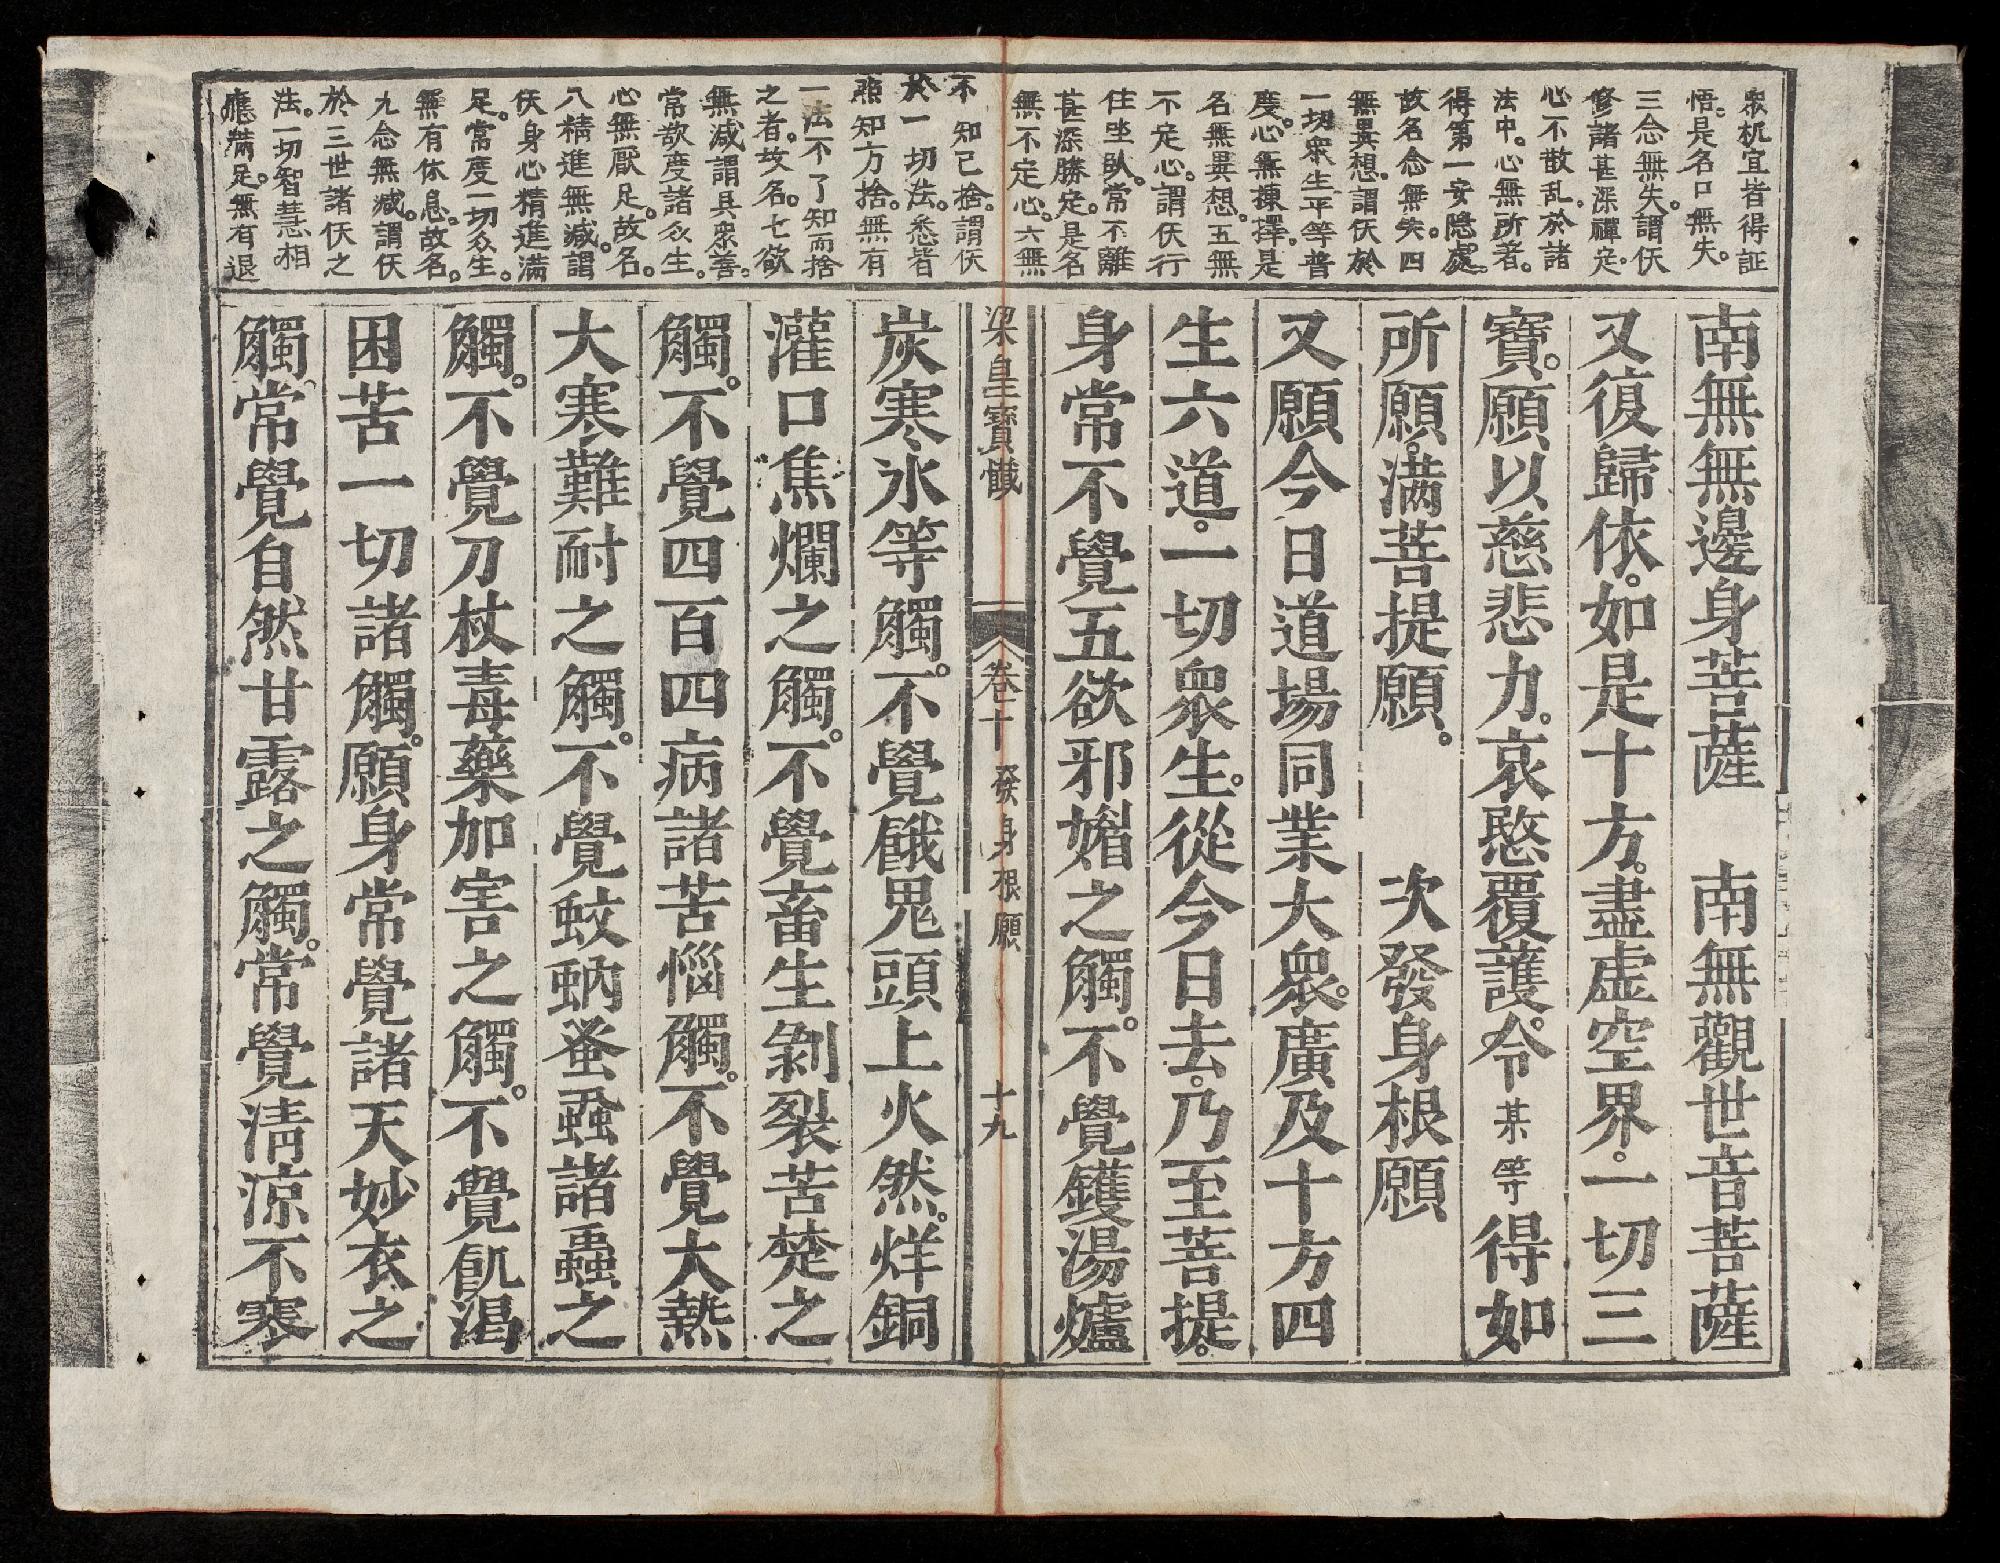 眾机宜皆得証
悟。是名口無失。
三念無失。謂仸
修諸甚深禪定。
心不散乱。於諸
法中。心無所著。
得第一安隐處。
故名念無失。四
無異想。謂仸於
一切眾生平等普
度。心無揀擇。是
名無異想。五無
不定心。謂仸行
住坐臥。常不離
甚深勝定。是名
無不定心。六無
不知已捨。謂仸
於一切法。悉皆
照知方捨。無有
一法不了知而捨
之者。故名。七欲
無減。謂具眾善。
常欲度諸众生。
心無厭足。故名。
八精進無减。謂
仸身心精進滿
足。常度一切众生。
無有休息。故名。
九念無减。謂仸
於三世諸仸之
法。一切智慧相
應滿足。無有退
南無無邊身菩薩　南無觀世音菩薩
又復歸依。如是十方。盡虛空界。一切三
寶。願以慈悲力。哀愍覆護。令某等得如
所願。滿菩提願。　次發身根願
又願今日道場同業大眾。廣及十方四
生六道。一切眾生。從今日去。乃至菩提。
身常不覺五欲邪媚之觸。不覺鑊湯爐
梁皇寶懺　卷十　癹身根願　十九
炭寒氷等觸。不覺餓鬼頭上火然。烊銅
灌口焦爛之觸。不覺畜生剝裂苦楚之
觸。不覺四百四病諸苦惱觸。不覺大熱
大寒難耐之觸。不覺蚊蚋蚤蝨諸蟲之
觸。不覺刀杖毒藥加害之觸。不覺飢渴
困苦一切諸觸。願身常覺諸天妙衣之
觸。常覺自然甘露之觸。常覺清涼不寒